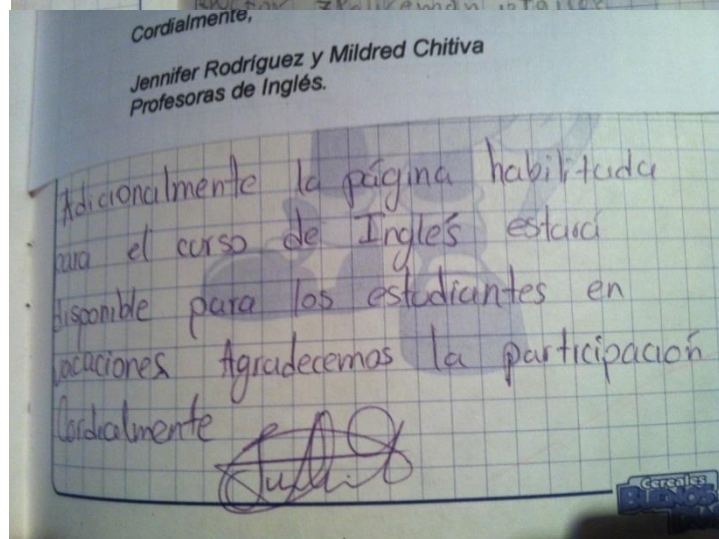 Cordialmente,
Jennifer Rodríguez y Mildred Chitiva
Profesoras de Inglés.
Adicionalmente la página habilitada
para el curso de Inglés estará
disponible para los estudiantes en
vacaciones Agradecemos la participación
Cordialmente
Cereales
BUENOS